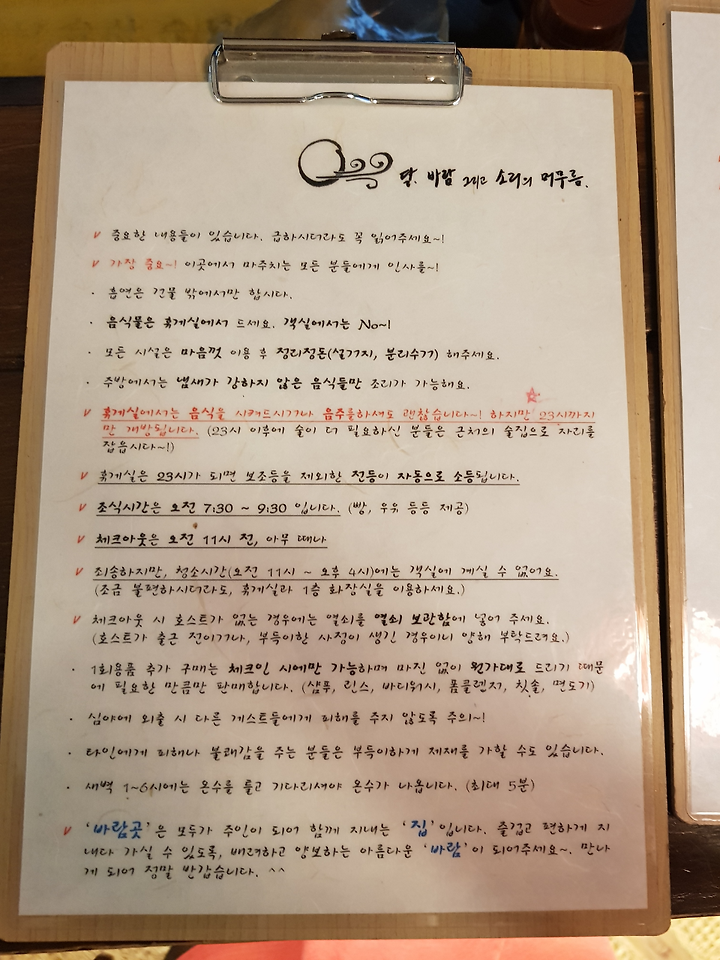 달. 바람 그리고 소리의 머무름.
v 중요한 내용들이 있습니다. 급하시더라도 꼭 읽어주세요~!
v 가장 중요~! 이곳에서 마주치는 모든 분들에게 인사를~!
· 흡연은 건물 밖에서만 합시다.
· 음식물은 휴게실에서 드세요. 객실에서는 No~!
· 모든 시설은 마음껏 이용 후 정리정돈(설거지, 분리수거) 해주세요.
· 주방에서는 냄새가 강하지 않은 음식들만 조리가 가능해요.
v 휴게실에서는 음식을 시켜드시거나 음주를하셔도 괜찮습니다~! 하지만 23시까지
만 개방됩니다. (23시 이후에 술이 더 필요하신 분들은 근처의 술집으로 자리를
잡읍시다~!)
v 휴게실은 23시가 되면 보조등을 제외한 전등이 자동으로 소등됩니다.
v 조식시간은 오전 7:30 ~ 9:30 입니다. (빵, 우유 등등 제공)
v 체크아웃은 오전 11시 전, 아무 때나
v 죄송하지만, 청소시간(오전 11시 ~ 오후 4시)에는 객실에 계실 수 없어요.
(조금 불편하시더라도, 휴게실과 1층 화장실을 이용하세요.)
v 체크아웃 시 호스트가 없는 경우에는 열쇠를 열쇠 보관함에 넣어 주세요.
(호스트가 출근 전이거나, 부득이한 사정이 생긴 경우이니 양해 부탁드려요.)
· 1회용품 추가 구매는 체크인 시에만 가능하며 마진 없이 원가대로 드리기 때문
에 필요한 만큼만 판매합니다. (샴푸, 린스, 바디워시, 폼클렌저, 칫솔, 면도기)
· 심야에 외출 시 다른 게스트들에게 피해를 주지 않도록 주의~!
· 타인에게 피해나 불쾌감을 주는 분들은 부득이하게 제재를 가할 수도 있습니다.
· 새벽 1~6시에는 온수를 틀고 기다리셔야 온수가 나옵니다. (최대 5분)
v '바람곳'은 모두가 주인이 되어 함께 지내는 '집'입니다. 즐겁고 편하게 지
내다 가실 수 있도록, 배려하고 양보하는 아름다운 '바람'이 되어주세요~. 만나
게 되어 정말 반갑습니다. ^^